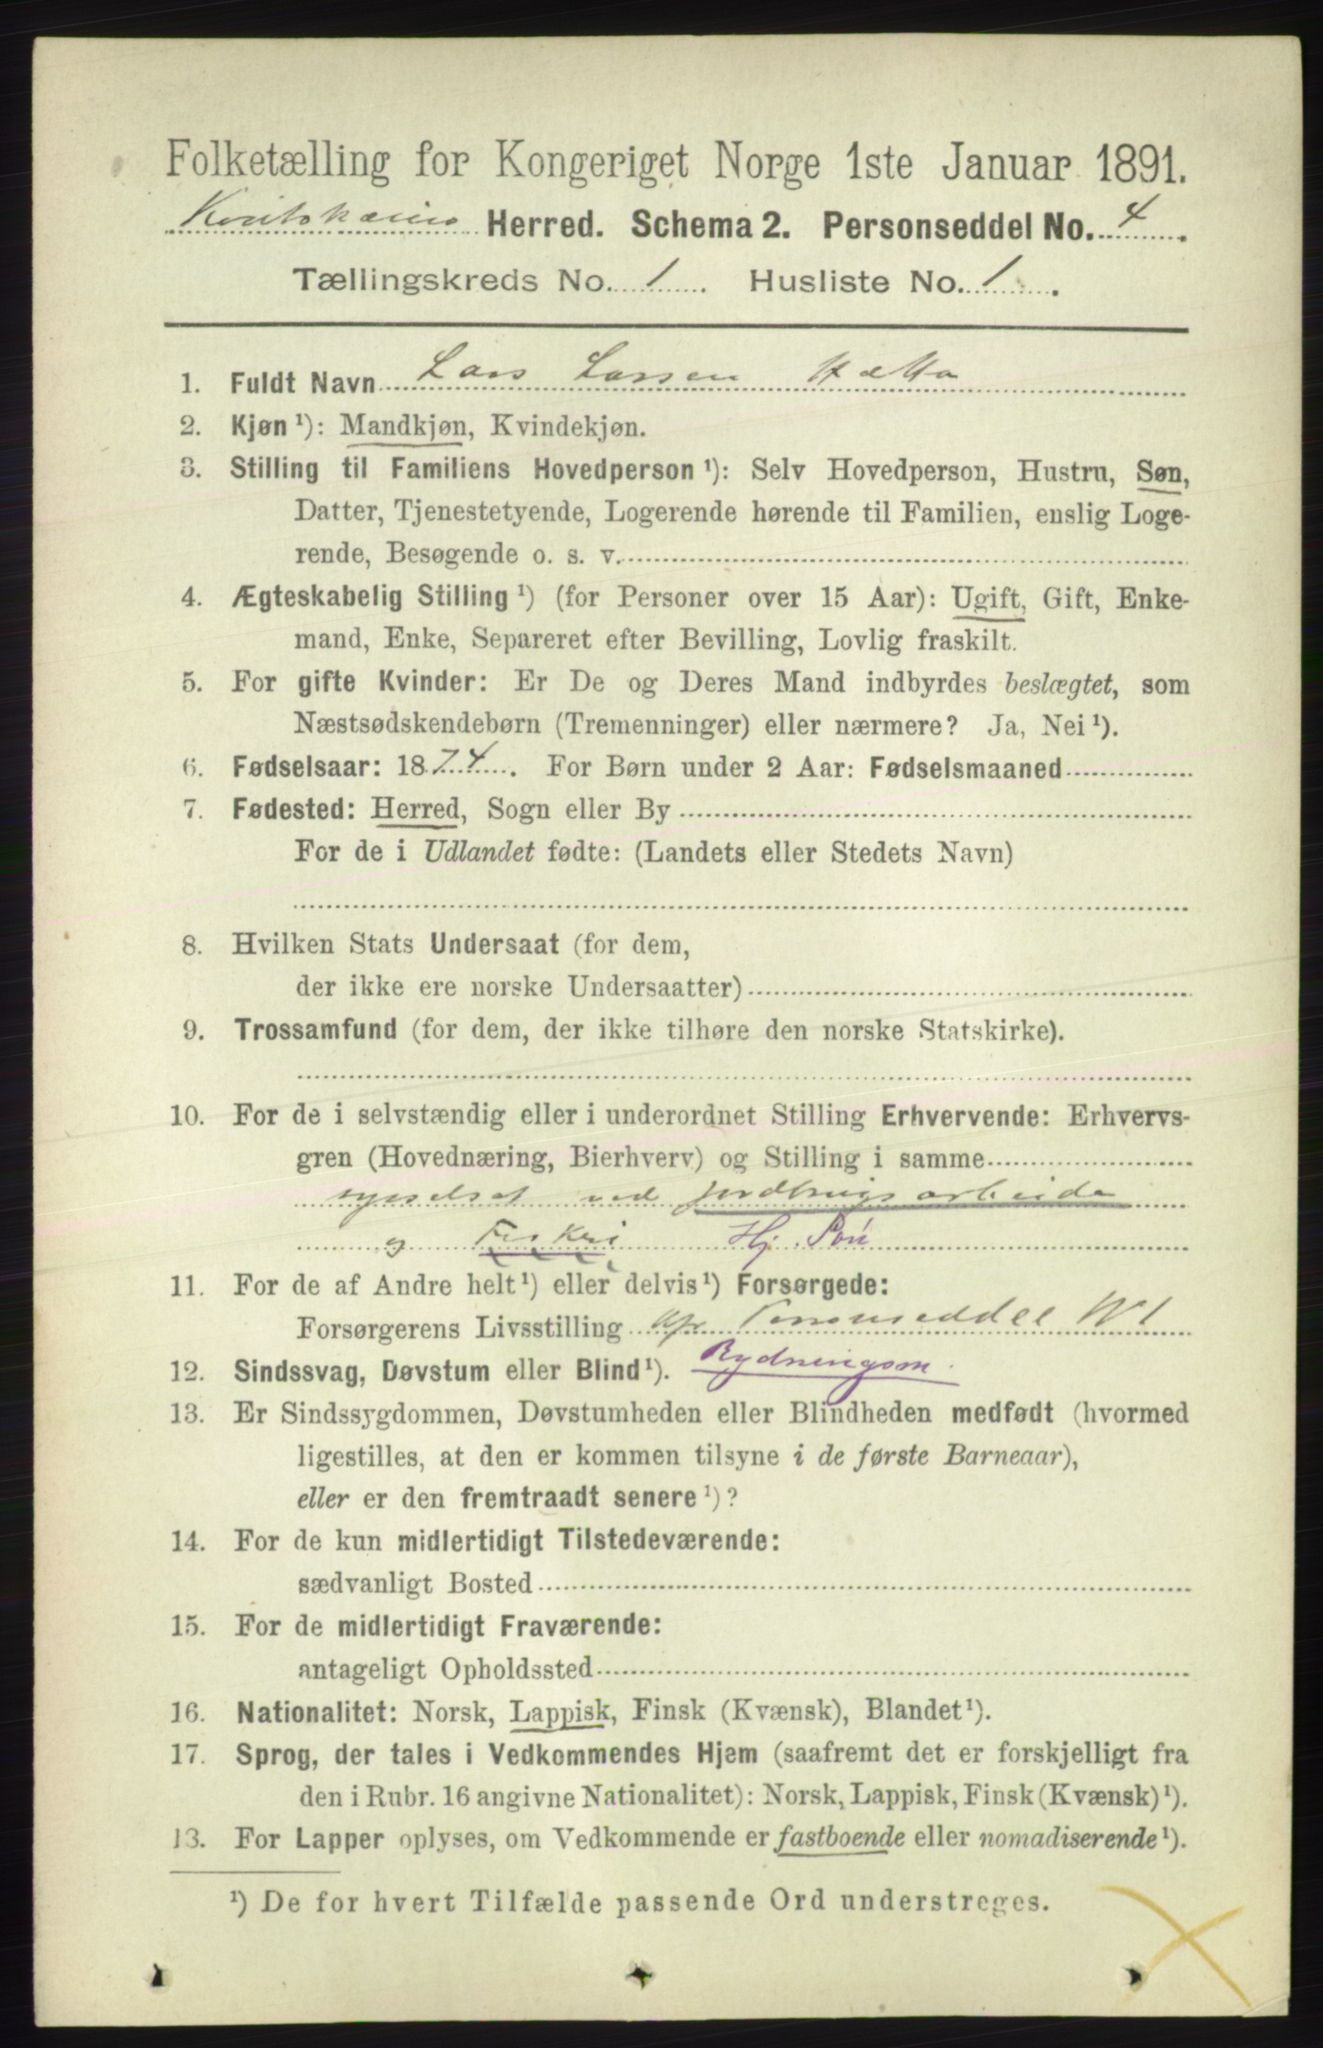 Folketælling for Kongeriget Norge 1ste Januar 1891.
Herred. Schema 2. Personseddel No. 4.
Tællingskreds No. 1. Husliste No. 1.
1. Fuldt Navn Lars Larsen Hætta
2. Kjøn ¹): Mandkjøn, Kvindekjøn.
3. Stilling til Familiens Hovedperson ¹): Selv Hovedperson, Hustru, Søn,
Datter, Tjenestetyende, Logerende hørende til Familien, enslig Loge-
rende, Besøgende o. s. v.
4. Ægteskabelig Stilling ¹) (for Personer over 15 Aar): Ugift, Gift, Enke-
mand, Enke, Separeret efter Bevilling, Lovlig fraskilt.
5. For gifte Kvinder: Er De og Deres Mand indbyrdes beslægtet, som
Næstsødskendebørn (Tremenninger) eller nærmere? Ja, Nei ¹).
6. Fødselsaar: 1874. For Børn under 2 Aar: Fødselsmaaned
7. Fødested: Herred, Sogn eller By
For de i Udlandet fødte: (Landets eller Stedets Navn)
8. Hvilken Stats Undersaat (for dem,
der ikke ere norske Undersaatter)
9. Trossamfund (for dem, der ikke tilhøre den norske Statskirke).
10. For de i selvstændig eller i underordnet Stilling Erhvervende: Erhvervs-
gren (Hovednæring, Bierhverv) og Stilling i samme
sysselsat ved jordbrugsarbeide
og Fiskeri Hj. Søn
11. For de af Andre helt ¹) eller delvis ¹) Forsørgede:
Forsørgerens Livsstilling Personseddel No 1
12. Sindssvag, Døvstum eller Blind ¹). Rydningsm.
13. Er Sindssygdommen, Døvstumheden eller Blindheden medfødt (hvormed
ligestilles, at den er kommen tilsyne i de første Barneaar),
eller er den fremtraadt senere ¹)?
14. For de kun midlertidigt Tilstedeværende:
sædvanligt Bosted
15. For de midlertidigt Fraværende:
antageligt Opholdssted
16. Nationalitet: Norsk, Lappisk, Finsk (Kvænsk), Blandet ¹).
17. Sprog, der tales i Vedkommendes Hjem (saafremt det er forskjelligt fra
den i Rubr. 16 angivne Nationalitet): Norsk, Lappisk, Finsk (Kvænsk) ¹).
13. For Lapper oplyses, om Vedkommende er fastboende eller nomadiserende ¹).
¹) De for hvert Tilfælde passende Ord understreges.